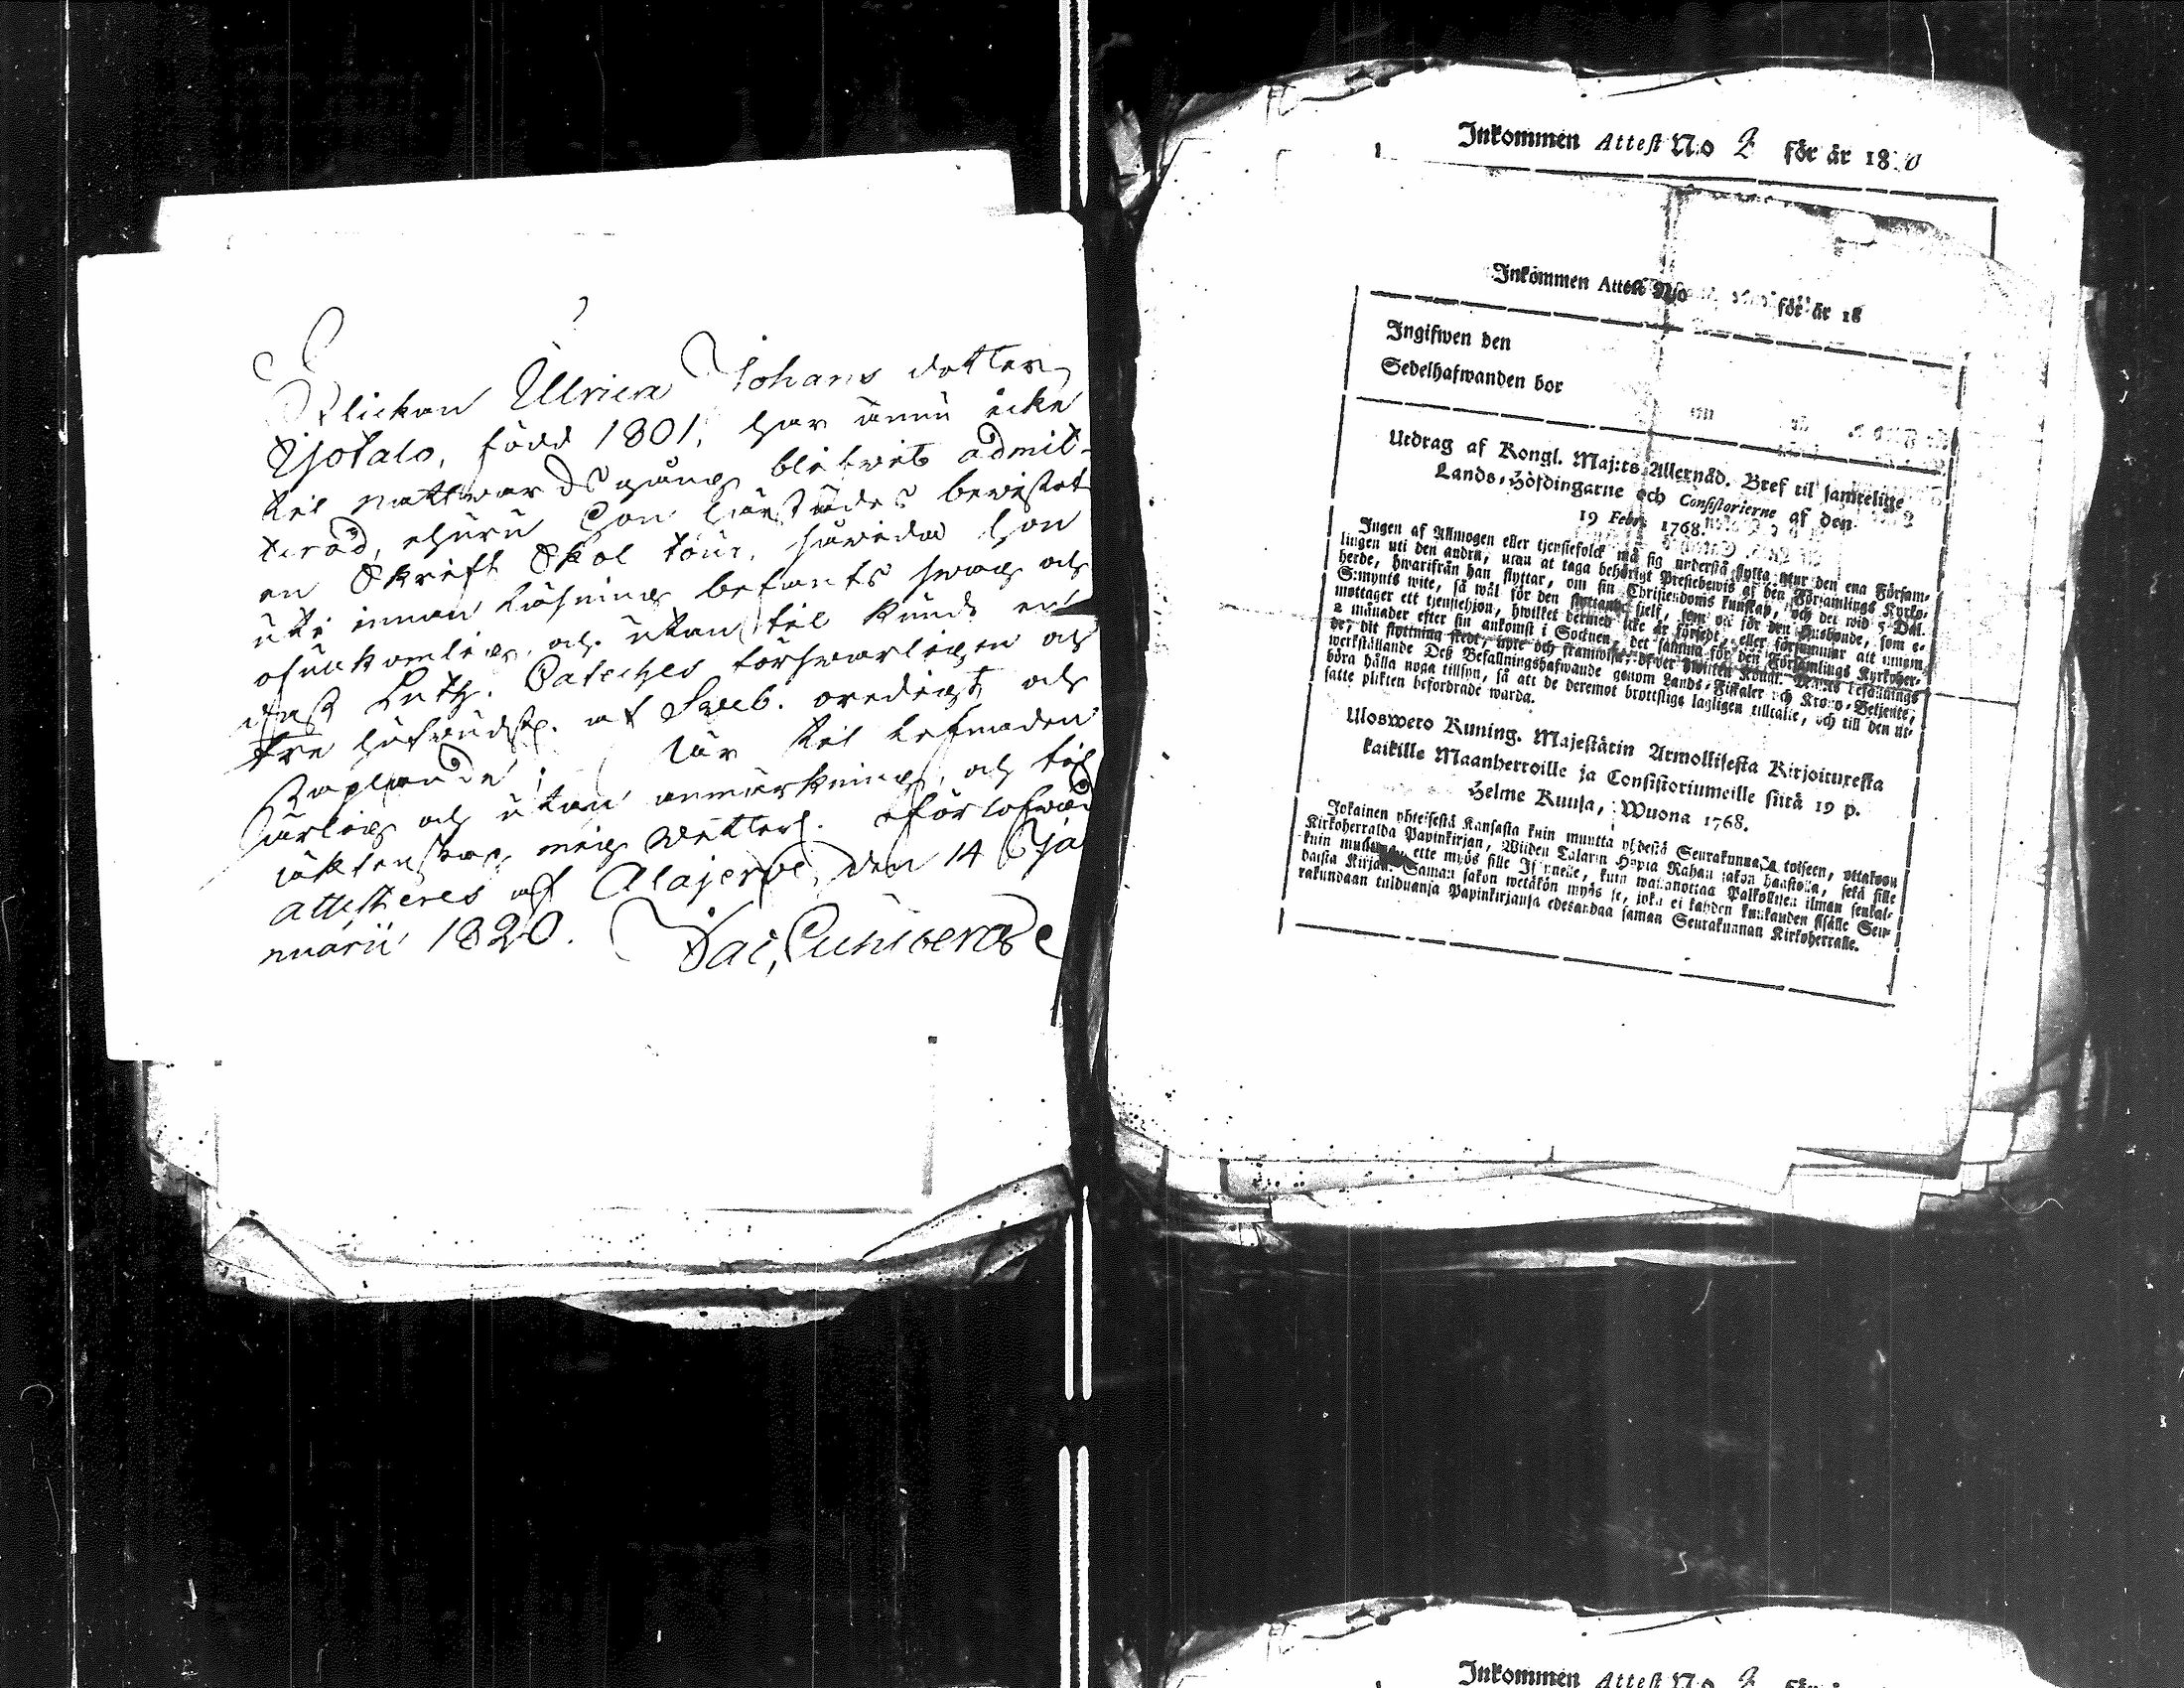 Flickan Ulrica Johans dotter
Isotalo, född 1801, har ännu icke
til nattwardsgång blifwit admit-
terad, ehuru hon härstädes bewistat
en Skrift Skol tour, såwida hon
uti innan läsning befants swag och
otilräckelig, och utan til kunde en-
dast Luth. Cateches förswarligen och
tre hufwudst. af Sweb. oredigt och
staplande; är til lefnaden
ärlig och utan anmärkning, och til
äktenskap mig wetterl. oförlofwad
attesteres af Alajerwi, den 14 Ja-
nuarii 1820.
Inkommen Attest No 2 för år 18 0
Inkommen Attest No för år 18
Ingifwen den
Sedelhafwanden bor
Utdrag af Kongl. Maj:ts Allernåd. Bref til samtelige
Lands-Höfdingarne och Consistorierne af den
19 Febr. 1768.
Ingen af Allmogen eller tjenstefolck må sig understå flytta utur den ena Försam-
lingen uti den andra, utan at taga behörigt Prestebewis af den Församlings Kyrko-
herde, hwarifrån han flyttar, om sin Christendoms kunskap, och det wid 5 Dal.
S:mynts wite, så wäl för den flyttande sielf, som ock för den Husbonde, som e-
mottager ett tjenstehjon, hwilket dermed icke är försedt, eller försummar att innom
2 månader efter sin ankomst i Socknen, det samma för den Församlings Kyrkoher-
de, dit flyttning skedt, upte och framwisa,
werkställande Deß Befallningshafwande genom Lands-Fiskaler och Krono-Betjente,
böra hålla noga tillsyn, så att de deremot brottslige lagligen tilltalte, och till den ut-
satte plikten befordrade warda.
Uloswero Kuning. Majestätin Armollisesta Kirjoituxesta
kaikille Maanherroille ja Consistoriumeille siitä 19 p.
Helme Kuusa, Wuona 1768.
Jokainen yhteisestä Kansasta kuin muutta yhdestä Seurakunnasta toiseen, ottakoon
Kirkoherralda Papinkirjan, Wiiden Talarin Hopia Rahan sakon haastolla, sekä sille
kuin muuttaa, ette myös sille Isännelle, kuin wastanottaa Palkollisen ilman senkal-
daista Kirjaa. Saman sakon wetäkön myös se, joka ei kahden kuukauden sisälle Seu-
rakundaan tulduansa Papinkirjansa edesandaa saman Seurakunnan Kirkoherralle.
Inkommen Attest No 2